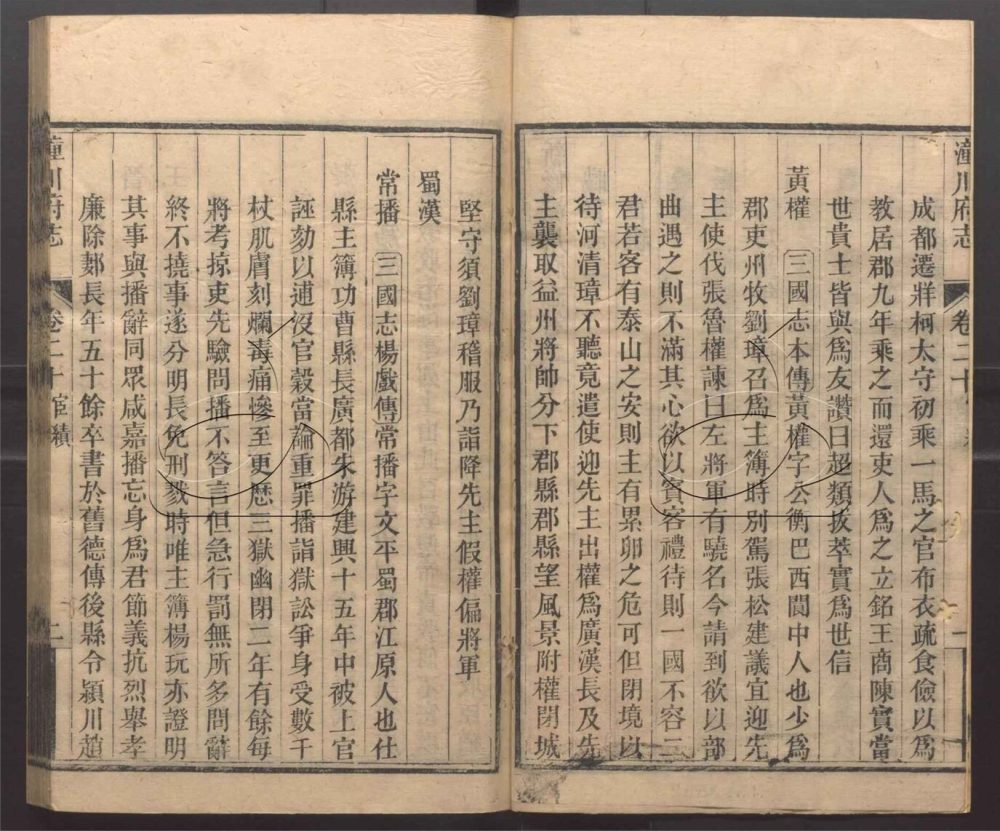 潼川府志 卷二十
成都遷牂柯太守初乘一馬之官布衣疏食儉以爲
教居郡九年乘之而還吏人爲之立銘王商陳實當
世貴士皆與爲友讚曰超類拔萃實爲世信
黃權 三國志本傳黃權字公衡巴西閬中人也少爲
郡吏州牧劉璋召爲主簿時別駕張松建議宜迎先
主使伐張魯權諫曰左將軍有驍名今請到欲以部
曲遇之則不滿其心欲以賓客禮待則一國不容二
君若客有泰山之安則主有累卵之危可但閉境以
待河清璋不聽竟遣使迎先主出權爲廣漢長及先
主襲取益州將帥分下郡縣郡縣望風景附權閉城
堅守須劉璋稽服乃詣降先主假權偏將軍
蜀漢
常播 三國志楊戲傳常播字文平蜀郡江原人也仕
縣主簿功曹縣長廣都朱游建興十五年中被上官
誣劾以逋沒官穀當論重罪播詣獄訟爭身受數千
杖肌膚刻爛毒痛慘至更歷三獄幽閉二年有餘每
將考掠吏先驗問播不答言但急行罰無所多問辭
終不撓事遂分明長免刑戮時唯主簿楊玩亦證明
其事與播辭同眾咸嘉播忘身爲君節義抗烈舉孝
廉除郪長年五十餘卒書於舊德傳後縣令潁川趙
潼川府志 卷二十 宦績 二